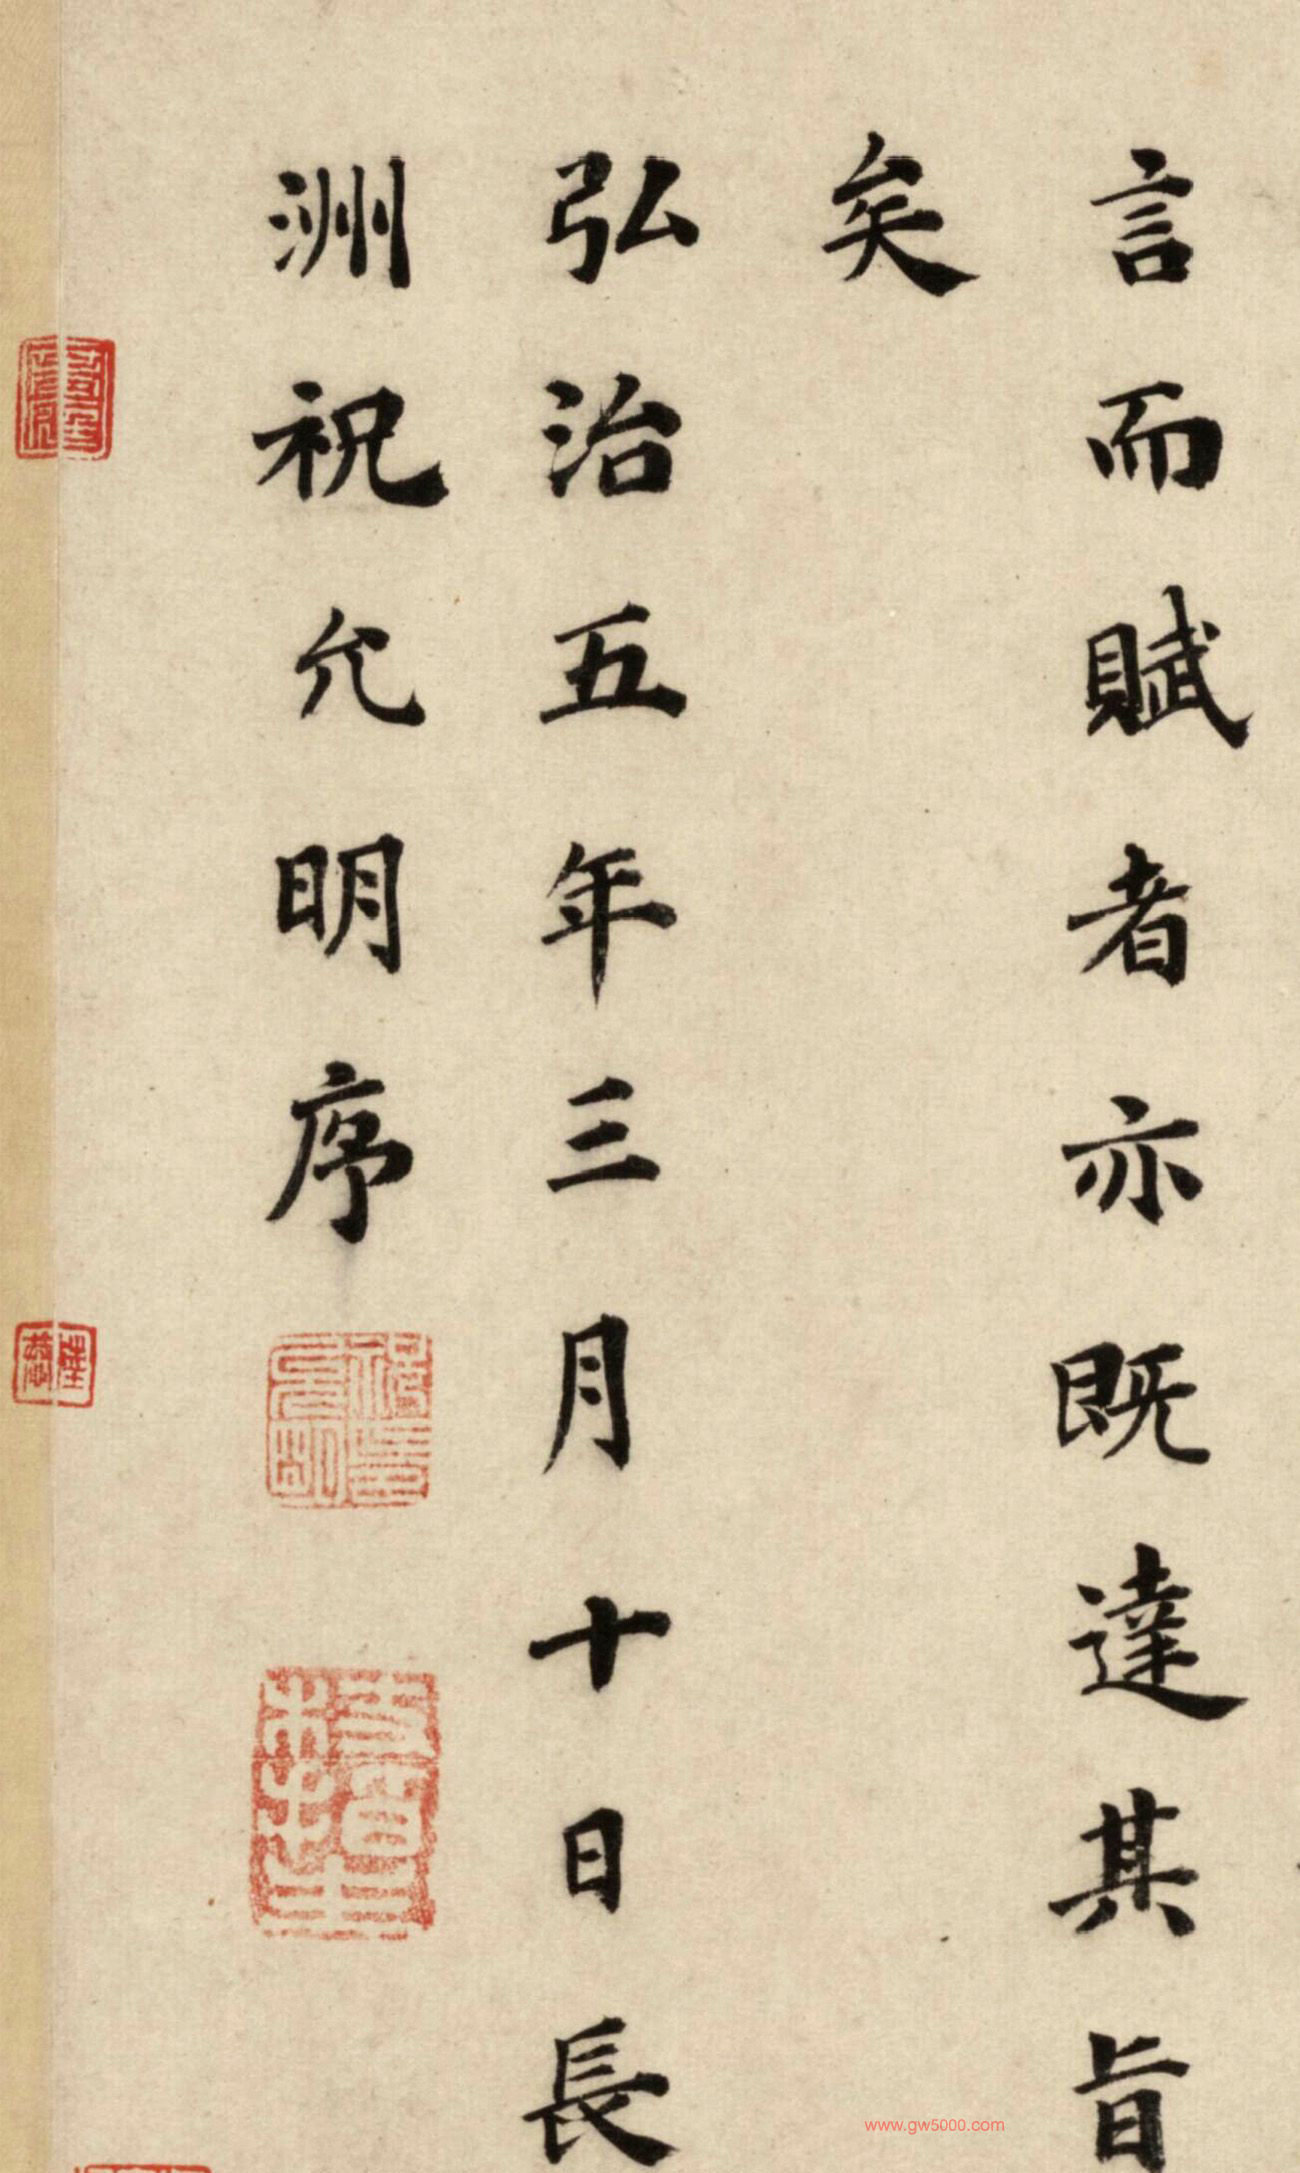 言而賦者亦既達其旨
矣
弘治五年三月十日長
洲祝允明序
www.gw5000.com